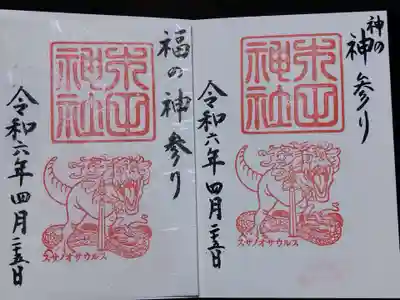 神の
神参り
神社
令和六年四月二五日
スサノオサウルス
福の神参り
神社
令和六年四月二五日
スサノオサウルス